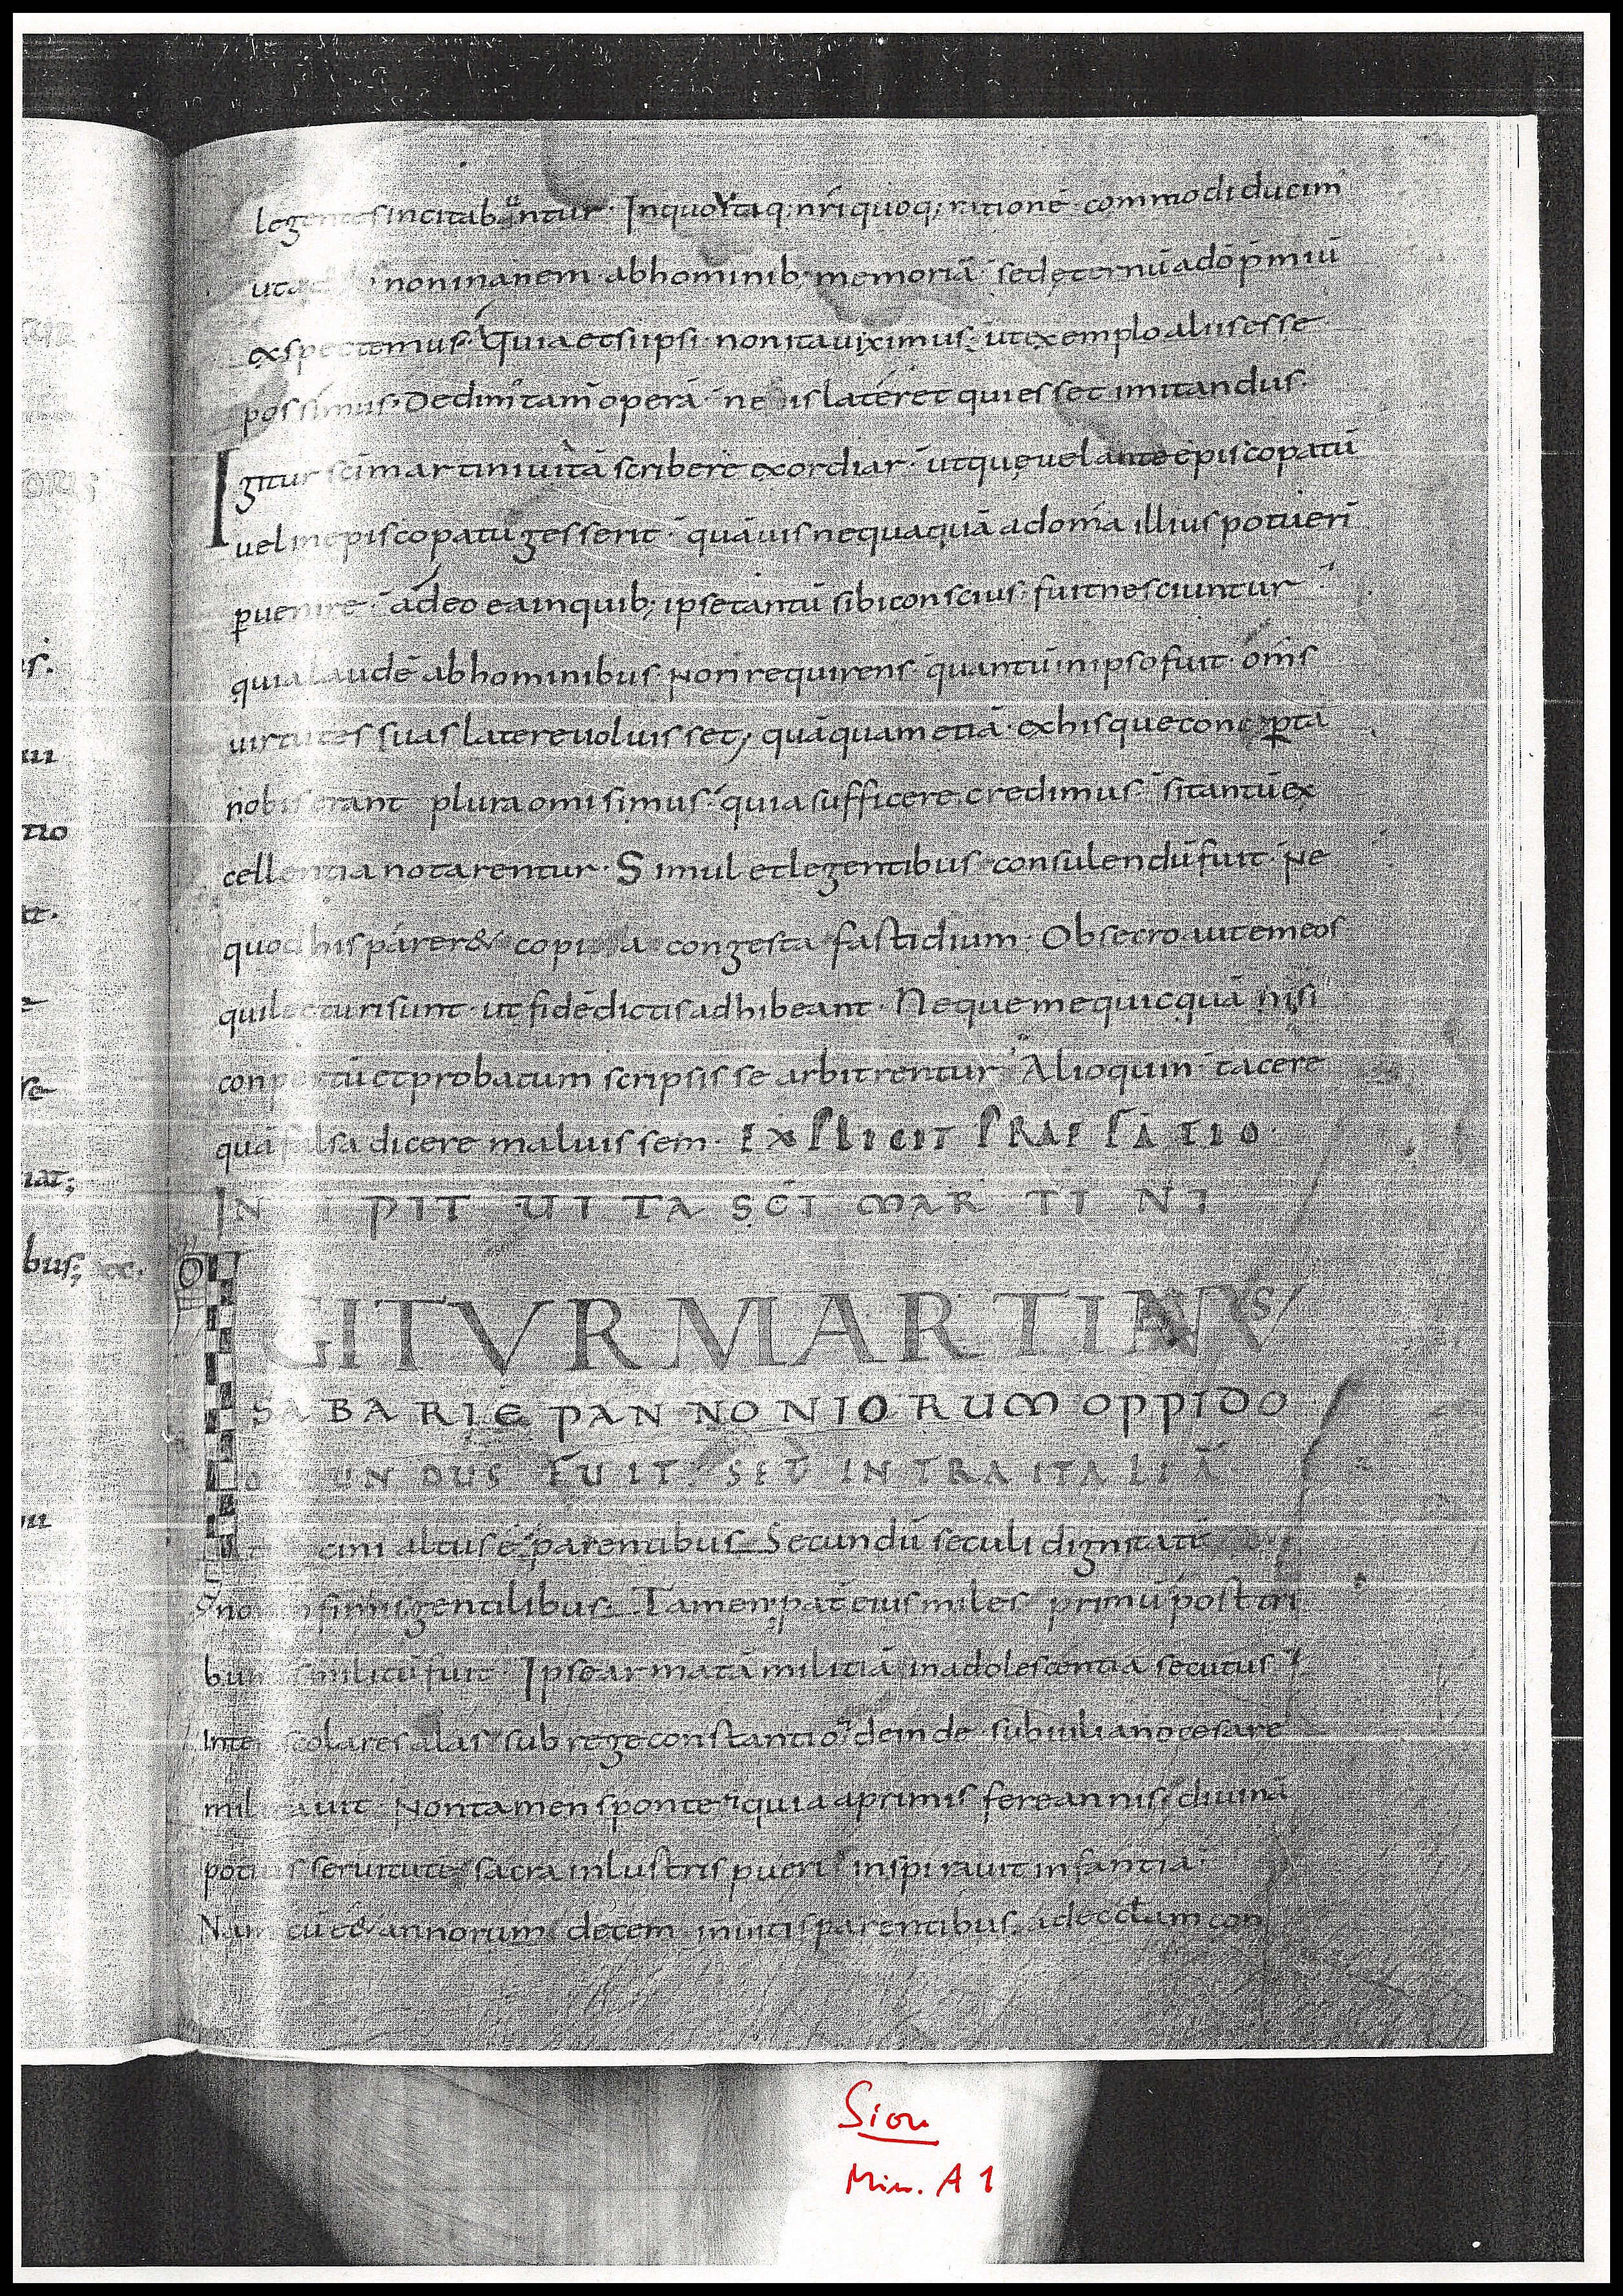 legentes incitabuntur · In quo itaq; nr̄i quoq; rationē commodi ducim̄
ut non inanem · ab hominib; memoriā sed ęternū a dō p̄miū
exspectemus · Quia etsi ipsi · non ita uiximus · ut exemplo aliis esse
possimus · Dedim' tam̄ operā ne is lateret qui esset imitandus ·
Igitur sc̄i martini uitā scribere exordiar · ut quę uel ante episcopatū
uel in episcopatu gesserit · quāuis nequaquā ad om̄ia illius potuerī
puenire · adeo ea in quib; ipse tantū sibi conscius fuit nesciuntur
quia laudē ab hominibus · Non requirens · quantū in ipso fuit · om̄s
uirtutes suas latere uoluisset; quāquam etiā · ex his que conpta
nobis erant plura omisimus · quia sufficere credimus · si tantū ex
cellentia notarentur · Simul et legentibus consulendū fuit · Ne
quod his parer& copia congesta fastidium · Obsecro aut̄ em eos
qui lecturi sunt · ut fidē dictis adhibeant · Neque me quicquā nisi
conpertū et probatum scripsisse arbitrentur · Alioquin tacere
quā falsa dicere maluissem · EXPLICIT PRAEFATIO ·
INCIPIT UITA SC̄I MARTINI
IGITVR MARTINVS
SABARIE PANNONIORUM OPPIDO
ORIUNDUS FUIT · SED INTRA ITALIĀ
ticini altus ē parentibus Secundū seculi dignitatē
non infimis gentilibus; Tamen pat̄ eius miles primū post tri
bunus militū fuit · Ipse armatā militiā in adolescentia secutus
Inter scolares alas sub rege constantio deinde sub iuliano cesare
militauit · Non tamen sponte quia a primis fere annis diuinā
potius seruitutē sacra inlustris pueri inspirauit infantia
Nam cū ee& annorum decem inuitis parentibus ad eccl̄am con
Sion
Min. A 1